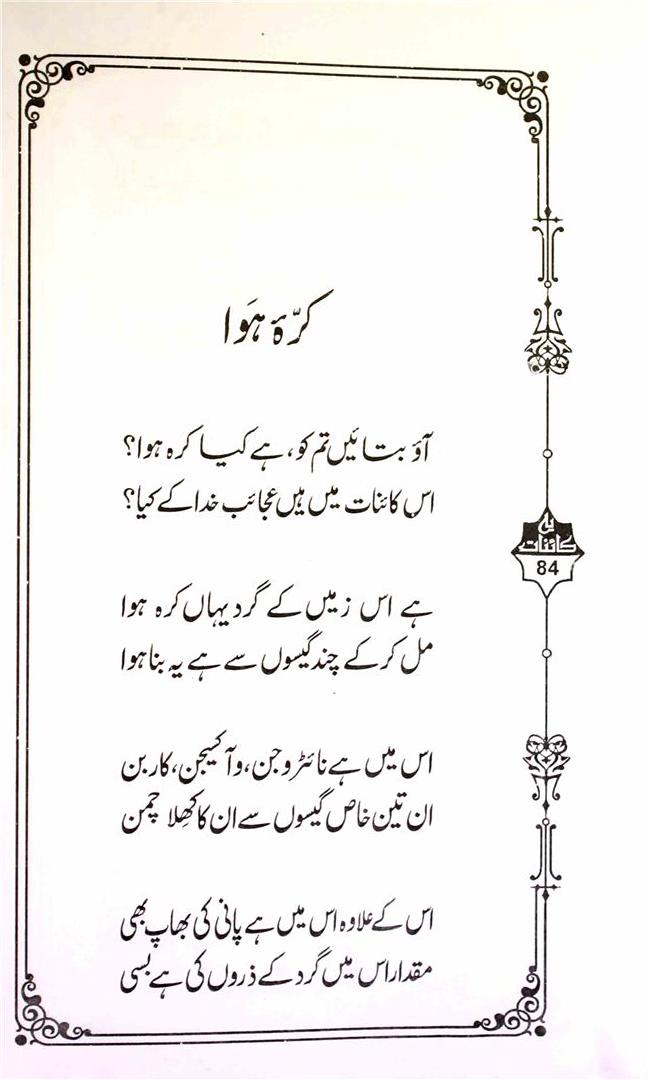 کرّۂ ہَوا
آؤ بتائیں تم کو، ہے کیا کرہ ہوا؟
اس کائنات میں ہیں عجائب خدا کے کیا؟
یہ
کائنات
84
ہے اس زمیں کے گرد یہاں کرہ ہوا
مل کر کے چند گیسوں سے ہے یہ بنا ہوا
اس میں ہے نائٹروجن، و آکسیجن، کاربن
ان تین خاص گیسوں سے ان کا کھِلا چمن
اس کے علاوہ اس میں ہے پانی کی بھاپ بھی
مقدار اس میں گرد کے ذروں کی ہے بسی